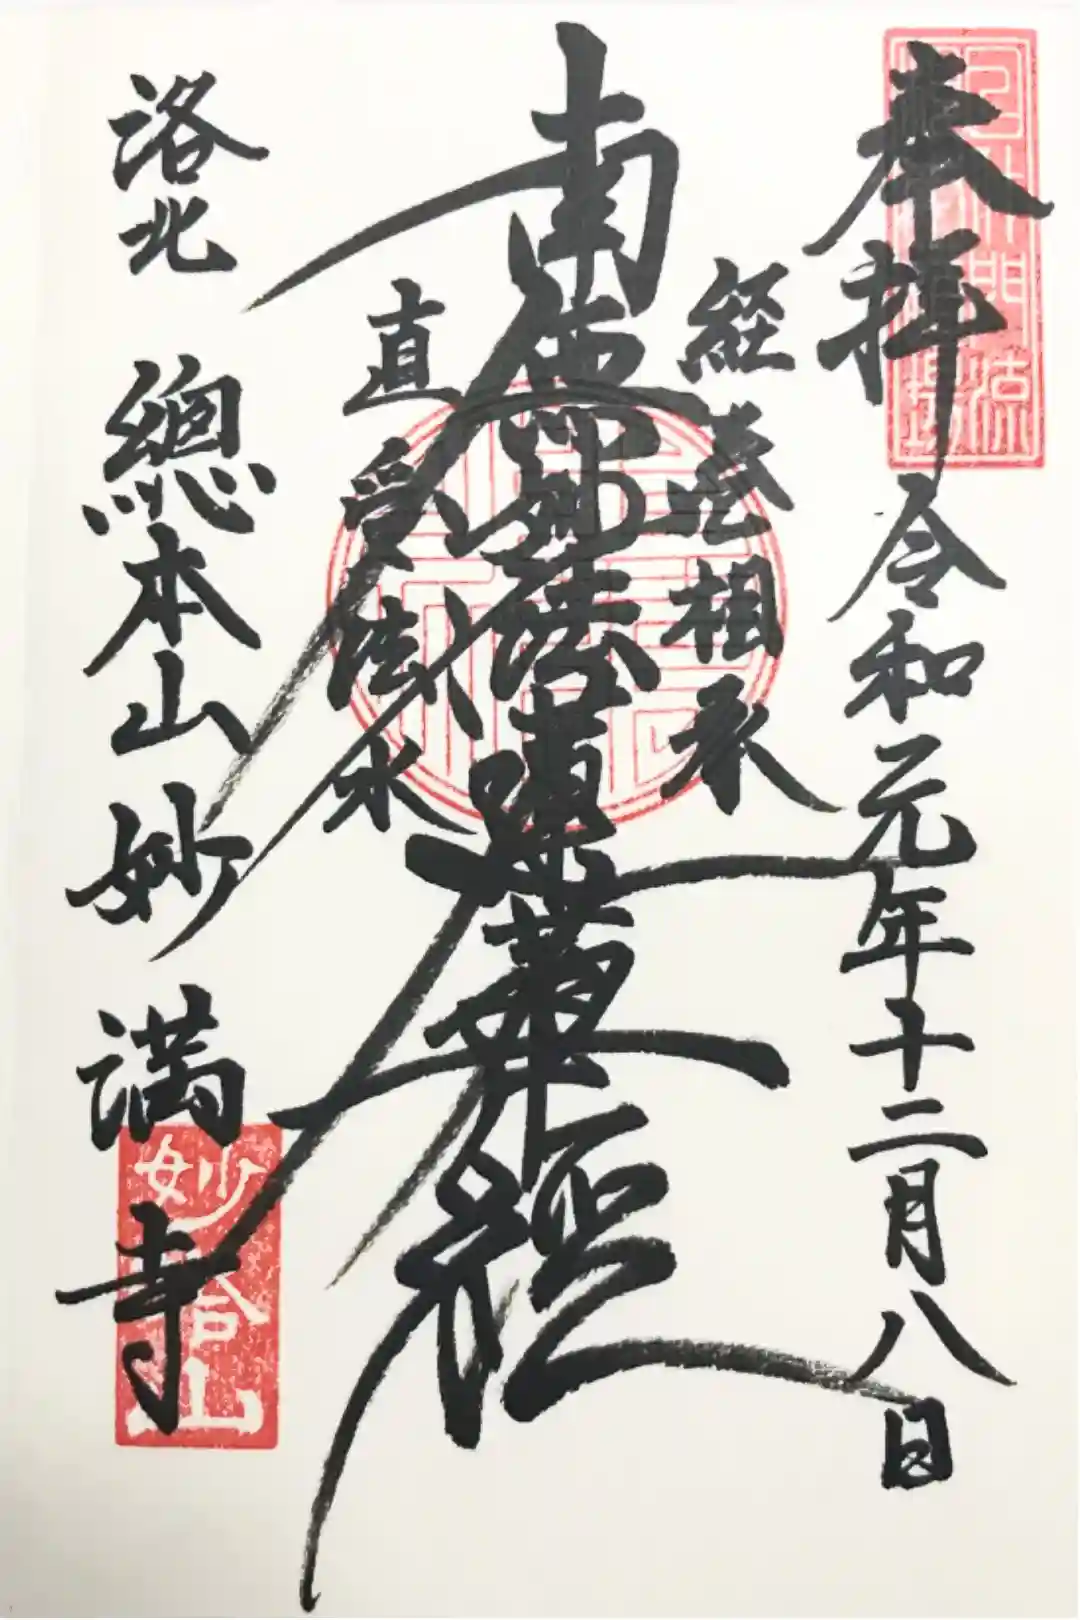 奉拝 令和元年十二月八日
経巻相承
南無妙法蓮華経
直受法水
洛北 總本山 妙満寺
妙塔山